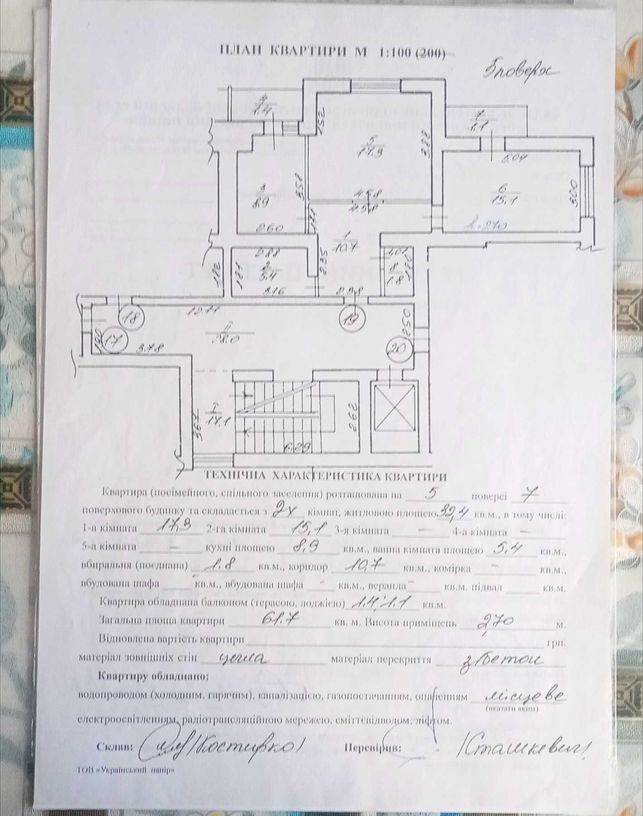 ПЛАН КВАРТИРИ М 1:100 (200)
5 поверх
4
1.4
7
1.1
1.52
5
17.3
3.88
5.04
3
8.9
3.58
6
15,1
3.00
4.58
4.58
2.60
h=2.70
1
10.7
2.88
1.01
1.82
1.87
2
5.4
2.35
8
1.8
1.80
3.16
2.98
12.11
18
19
17
II
28.0
2.50
20
3.78
I
17.1
3.67
2.62
6.29
ТЕХНІЧНА ХАРАКТЕРИСТИКА КВАРТИРИ
Квартира (посімейного, спільного заселення) розташована на 5 поверсі 7
поверхового будинку та складається з 2х кімнат, житловою площею 32,4 кв.м., в тому числі:
1-а кімната 17,3 2-га кімната 15,1 3-я кімната – 4-а кімната –
5-а кімната – кухні площею 8,9 кв.м., ванна кімната площею 5,4 кв.м.,
вбиральня (поєднана) 1.8 кв.м., коридор 10,7 кв.м., комірка – кв.м.,
вбудована шафа – кв.м., вбудована шафа – кв.м., веранда – кв.м. підвал кв.м.
Квартира обладнана балконом (терасою, лоджією) 1.4; 1.1 кв.м.
Загальна площа квартири 61.7 кв. м. Висота приміщень 2,70 м.
Відновлена вартість квартири грн.
матеріал зовнішніх стін цегла матеріал перекриття з/бетон
Квартиру обладнано:
водопроводом (холодним, гарячим), каналізацією, газопостачанням, опаленням місцеве
(вказати яким)
електроосвітленням, радіотрансляційною мережею, сміттєвідводом, ліфтом.
Склав: /Костирко/ Перевірив: /Сташкевич/
ТОВ «Український папір»